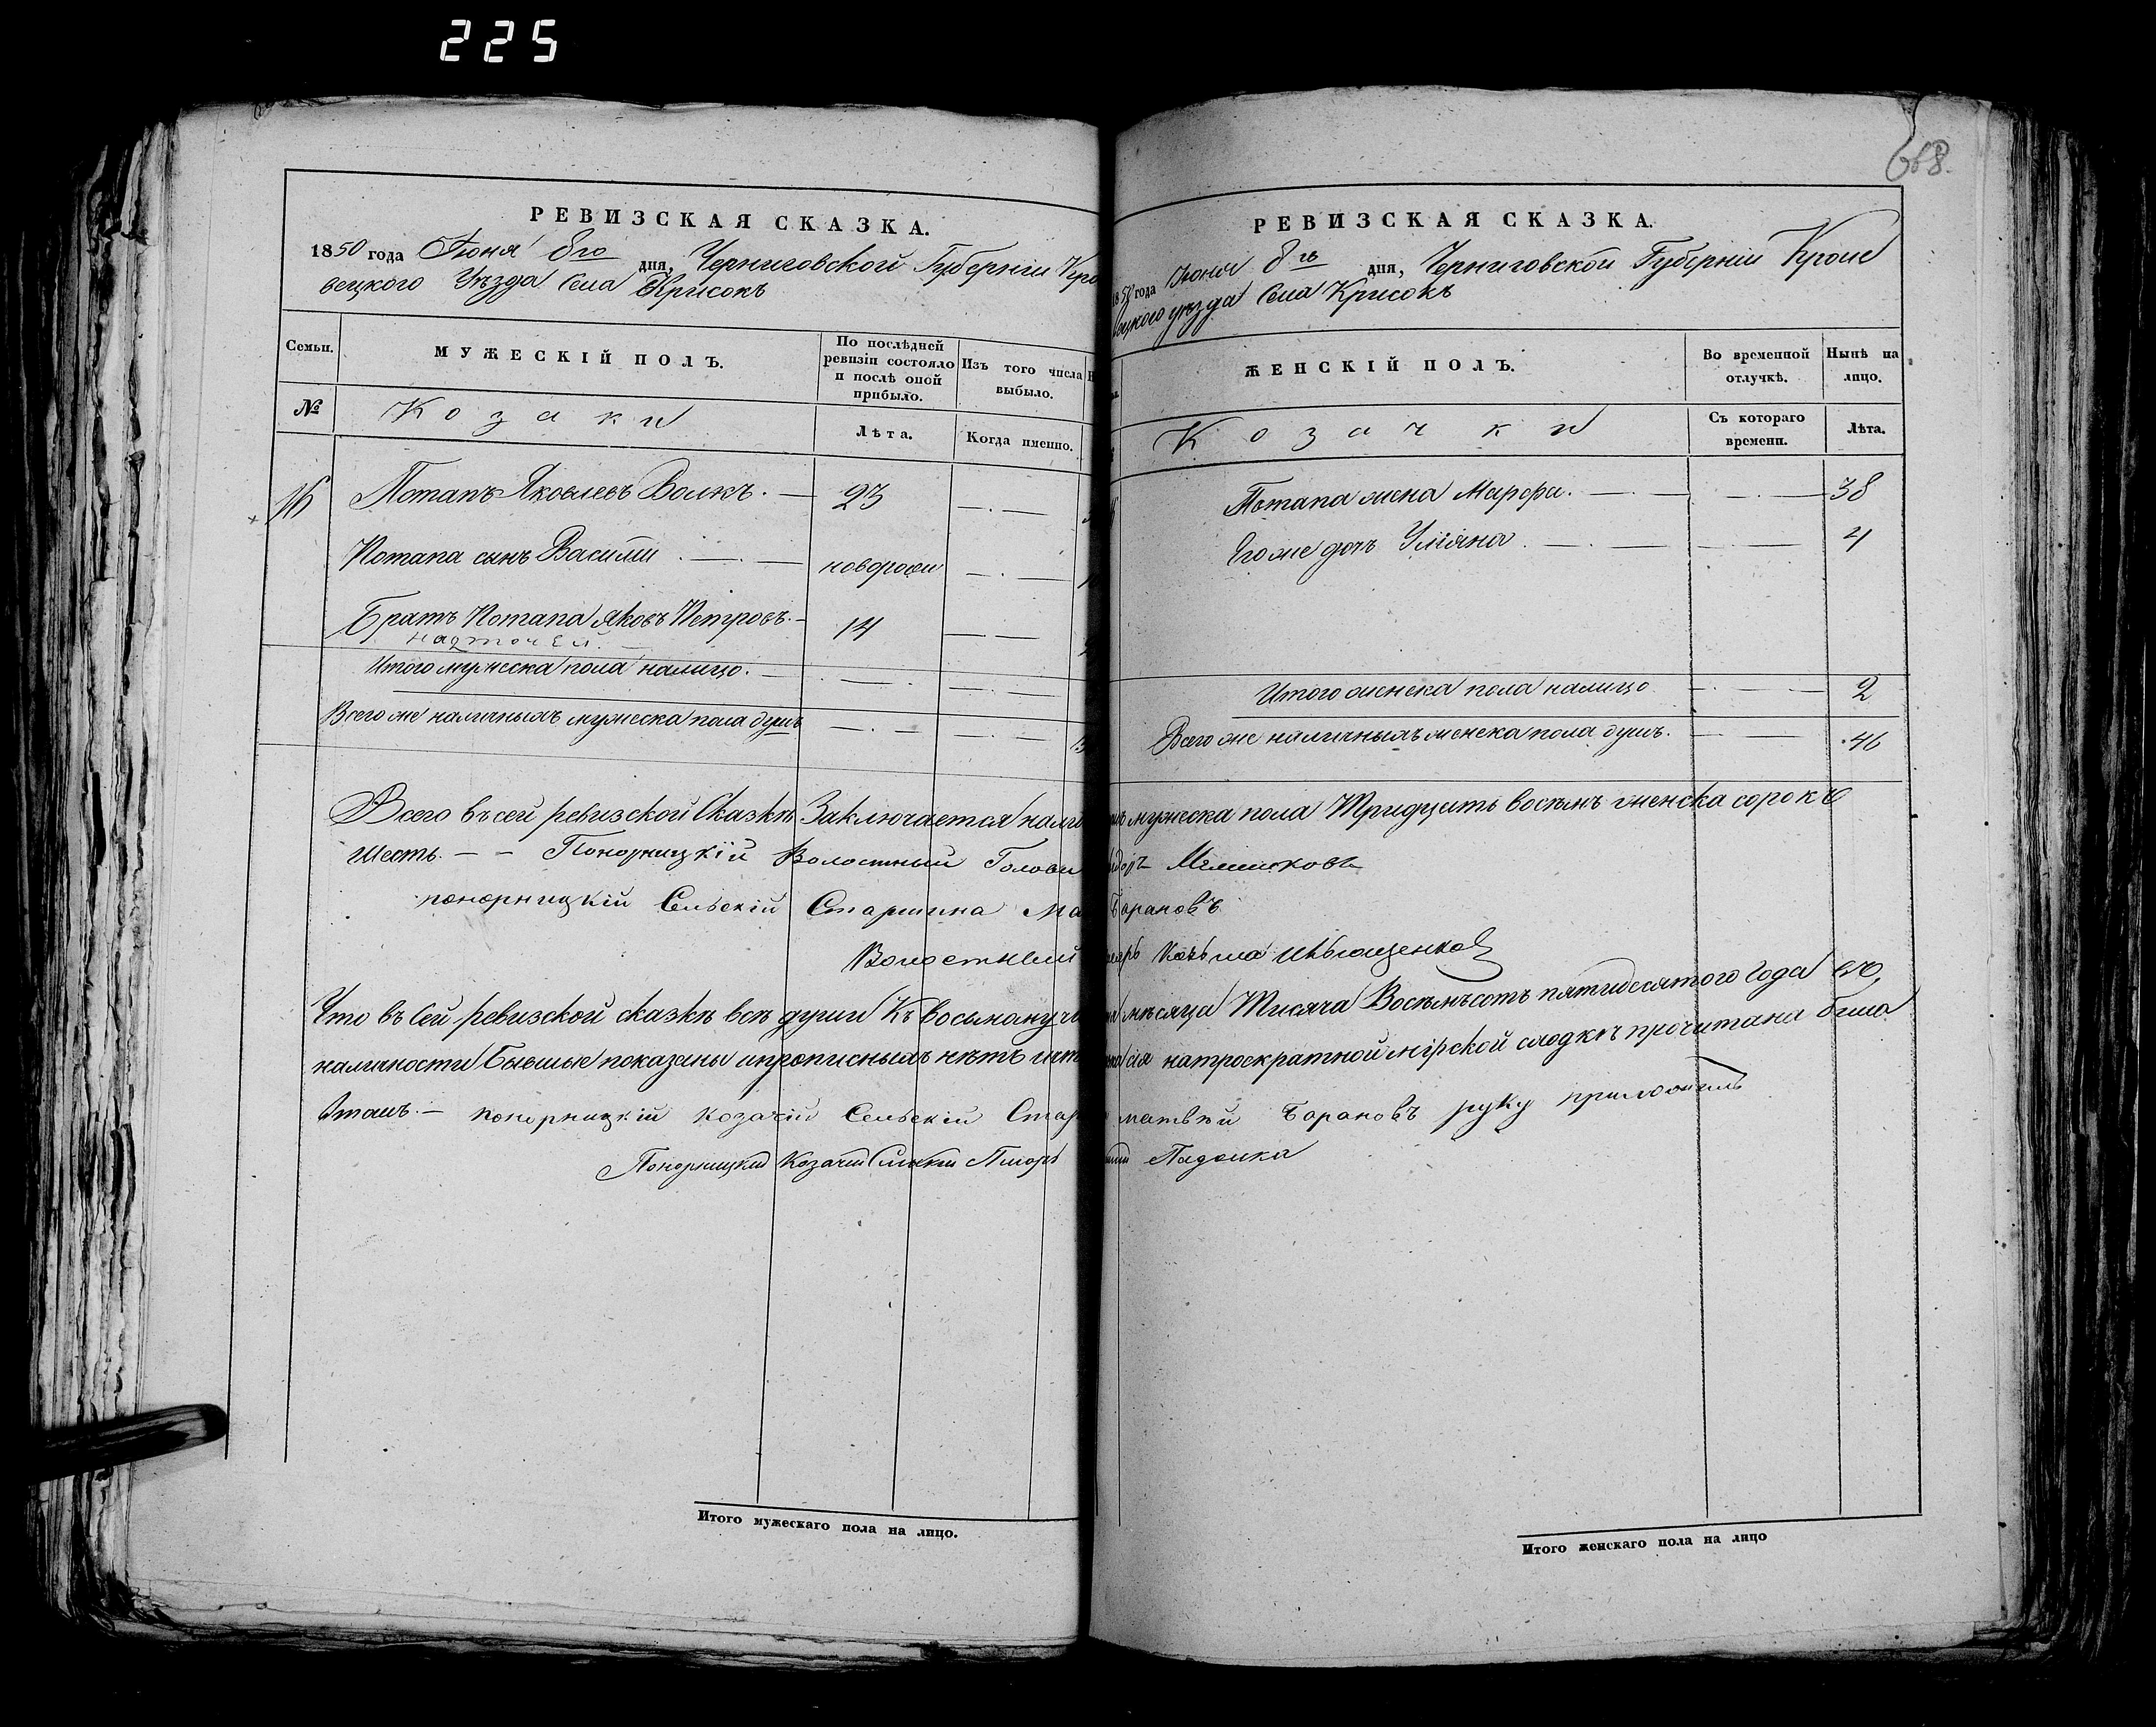 225
РЕВИЗСКАЯ СКАЗКА.
1850 года Июня 8го дня, Черниговской Губернии Кро
вецкого Уѣзда Села Крисокъ
Семьи.
МУЖЕСКІЙ ПОЛЪ.
По послѣдней ревизіи состояло и послѣ оной прибыло.
Изъ того числа выбыло.
№
Козаки
Лѣта.
Когда именно.
16 Потапъ Яковлевъ Волкъ. — 23
Потапа сынъ Василий новорож
Братъ Потапа Яковъ Петровъ. — 14
Итого мужеска пола налицо. —
Всего же наличныхъ мужеска пола душъ
668.
РЕВИЗСКАЯ СКАЗКА.
1850 года Июня 8го дня, Черниговской Губерніи Кроле
вецкого уѣзда Села Крисокъ
ЖЕНСКІЙ ПОЛЪ.
Во временной отлучкѣ.
Нынѣ на лицо.
Козачки
Съ котораго времени.
Лѣта.
Потапа жена Марфа. — 38
Его же дочь Уліяна. — 4
Итого женска пола налицо — 2
Всего же наличныхъ женска пола душъ. — 46
Всего въ сей ревизской Сказкѣ Заключается нали мужеска пола Тридцать восемъ женска сорокъ
шесть. — — Понорницкій Волостный Голова
понорницкій Сельскій Старшина Ма Барановъ
Волостный
Что въ Сей ревизской сказкѣ всѣ души Къ восьмому мѣсяца Тисяча Восемъсотъ пятидесятого Года въ
наличности Бывшые показаны и прописныхъ нѣтъ сія на троекратной мірской сходкѣ прочитана была
понорницкій козачій Сельскій Стар матвѣй Барановъ руку приложилъ
Понорницкий Козачий
Итого мужескаго пола на лицо.
Итого женскаго пола на лицо